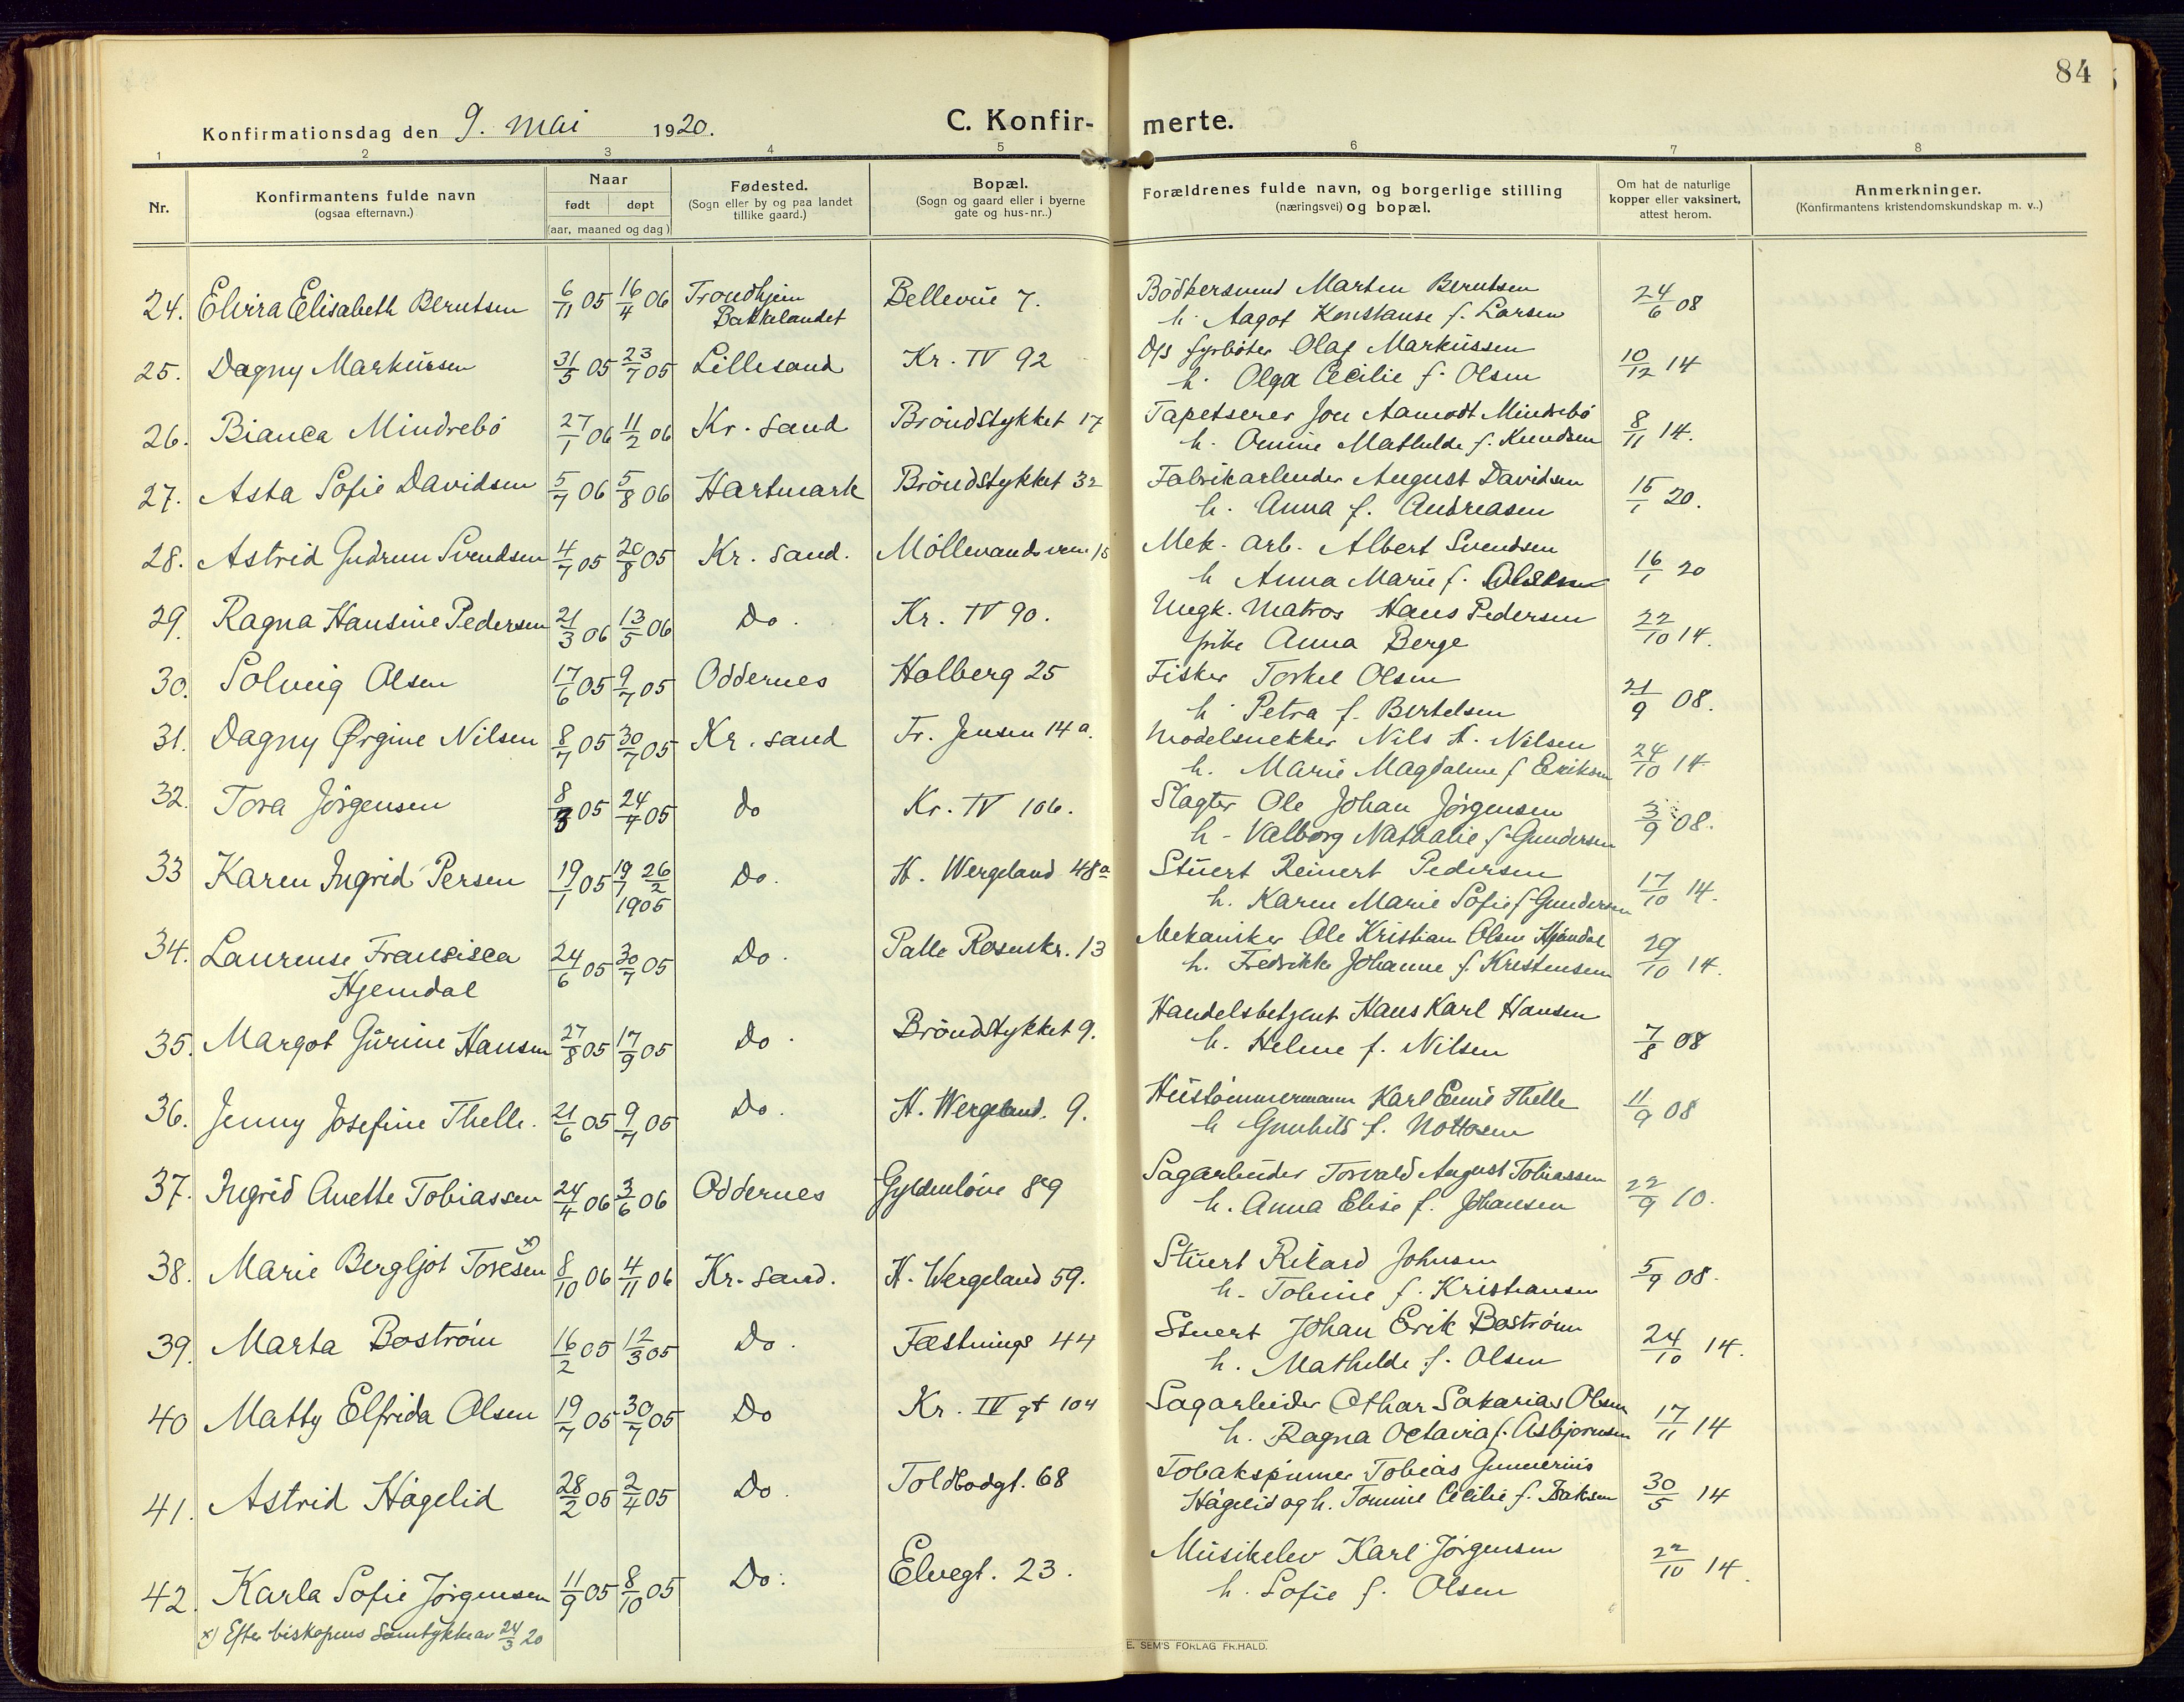 84
Konfirmationsdag den 9. mai 1920.
C. Konfir- merte.
1 2 3 4 5 6 7 8
Nr.
Konfirmantens fulde navn
(ogsaa efternavn.)
Naar
født døpt
(aar, maaned og dag)
Fødested.
(Sogn eller by og paa landet
tillike gaard.)
Bopæl.
(Sogn og gaard eller i byerne
gate og hus-nr..)
Forældrenes fulde navn, og borgerlige stilling
(næringsvei) og bopæl.
Om hat de naturlige
kopper eller vaksinert,
attest herom.
Anmerkninger.
(Konfirmantens kristendomskundskap m. v..)
24. Elvira Elisabeth Berntsen 6/11 05 16/4 06 Trondhjem Bakkelandet Bellevue 7. Bödkersvend Marten Berntsen 24/6 08
h. Aagot Konstanse f. Larsen
25. Dagny Markussen 31/5 05 23/7 05 Lillesand Kr. IV 92 D/s fyrböter Olaf Markussen 10/12 14
h. Olga Cecilie f. Olsen
26. Bianca Mindrebö 27/1 06 11/2 06 Kr. sand Bröndstykket 17 Tapetserer Jon Aamodt Mindrebö 8/11 14.
h. Omine Mathilde f. Knudsen
27. Asta Sofie Davidsen 5/7 06 5/8 06 Hartmark Bröndstykket 32 Fabrikarbeider August Davidsen 15/1 20.
h. Anna f. Andreasen
28. Astrid Gudrun Svendsen 4/7 05 20/8 05 Kr. sand. Möllevandsvein 15 Mek. arb. Albert Svendsen 16/1 20
h Anna Marie f.
29. Ragna Hansine Pedersen 21/3 06 13/5 06 Do. Kr. IV 90. Ungk. Matros Hans Pedersen 22/10 14.
pike Anna Berge
30. Solveig Olsen 17/6 05 9/7 05 Oddernes Holberg 25 Fisker Torkel Olsen 21/9 08.
h. Petra f. Bertelsen
31. Dagny Ørgine Nilsen 8/7 05 30/7 05 Kr. sand Fr. Jensen 14 a. Modelsnekker Nils A. Nilsen 24/10 14
h. Marie Magdalene f Eriksen
32. Tora Jörgensen 8/3 05 24/4 05 do Kr. IV 106. Slagter Ole Johan Jörgensen 3/9 08.
h - Valborg Nathalie f Gundersen
33 Karen Ingrid Persen 19/1 05 19/1 26/2 1905 Do. H. Wergeland 48a Stuert Reinert Pedersen 17/10 14.
h. Karen Marie Sofie f Gundersen
34. Laurense Fransisca 24/6 05 30/7 05 Do. Palle Rosenkr. 13 Mekaniker Ole Kristian Olsen Hjemdal 29/10 14.
Hjemdal h. Fredrikke Johanne f. Kristensen
35. Margot Gurine Hansen 27/8 05 17/9 05 Do. Bröndstykket 9. Handelsbetjent Hans Karl Hansen 7/8 08
h. Helene f. Nilsen
36. Jenny Josefine Thelle. 21/6 05 9/7 05 Do. H. Wergeland. 9. Hustömmermann Karl Emil Thelle 11/9 08
h Gunhild f. Nottosen
37. Ingrid Anette Tobiassen 24/4 06 3/6 06 Oddernes Gyldenlöve 89 Sagarbeider Torvald August Tobiassen 22/9 10.
h. Anna Elise f. Johansen
38. Marie Bergljot Toresen x) 8/10 06 4/11 06 Kr. sand. H. Wergeland 59. Stuert Rikard Johnsen 5/9 08.
h. Tobine f. Kristiansen
39. Marta Boström 16/2 05 12/3 05 Do. Fæstnings 44 Stuert Johan Erik Boström 24/10 14.
h. Mathilde f. Olsen
40 Matty Elfrida Olsen 19/7 05 30/7 05 Do Kr. IV gt 104 Sagarbeider Othar Sakarias Olsen 17/11 14
h. Ragna Octavia f. Asbjornsen
41. Astrid Hägelid 28/2 05 2/4 05 Do. Toldbodgt. 68 Tobakspinner Tobias Gunnerius 30/5 14
Hägelid og h. Tomine Cecilie f. Isaksen
42. Karla Sofie Jörgensen 11/9 05 8/10 05 Do. Elvegt. 23. Musikelev Karl Jörgensen 22/10 14.
h. Sofie f. Olsen
x) Efter biskopens samtykke av 24/3 20
E. SEM'S FORLAG FR.HALD.